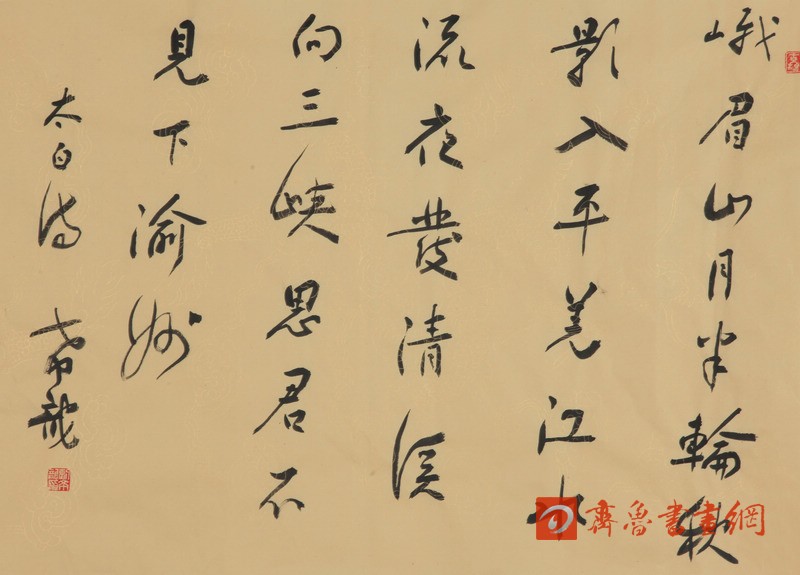 峨眉山月半輪秋
影入平羌江水
流夜發清溪
向三峽思君不
見下渝州
太白詩
齊魯書畫網